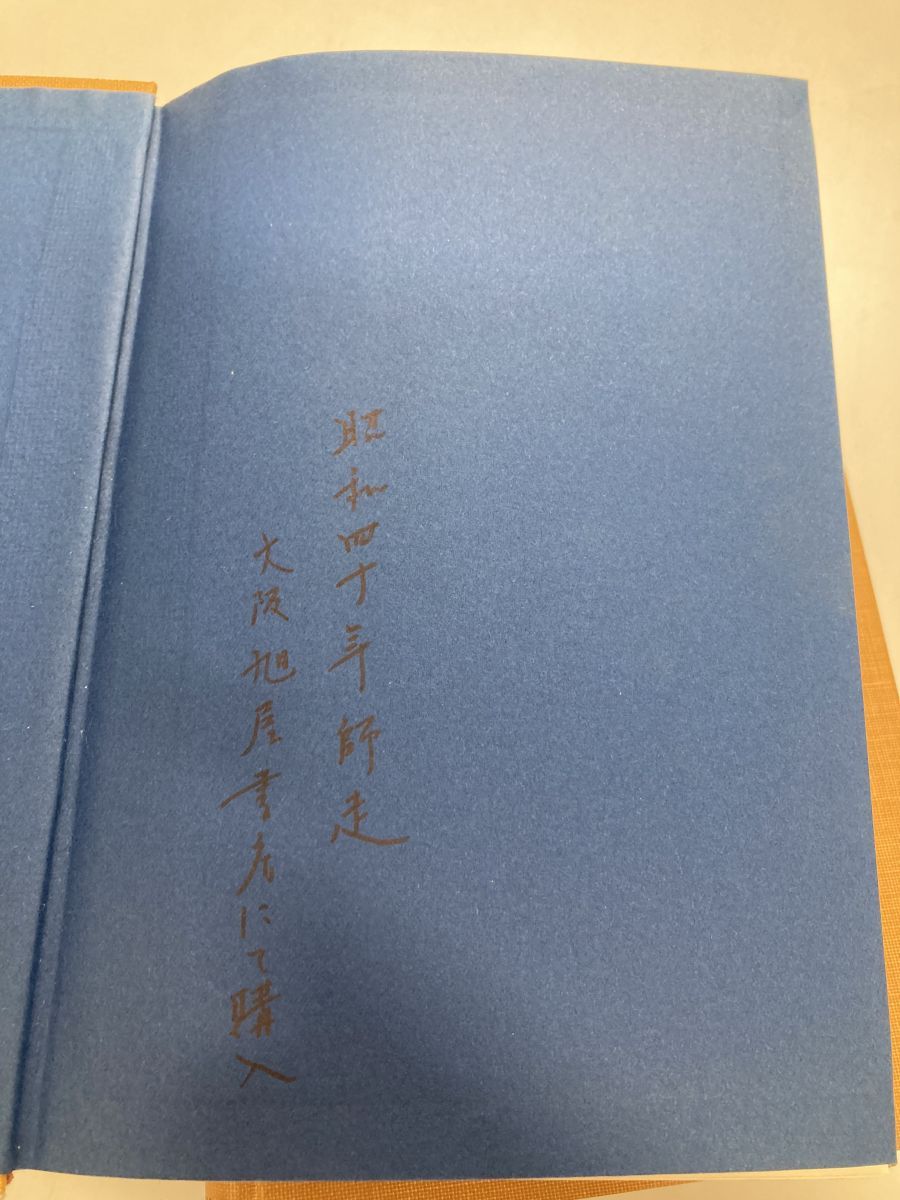 昭和四十年師走
大阪旭屋書店にて購入